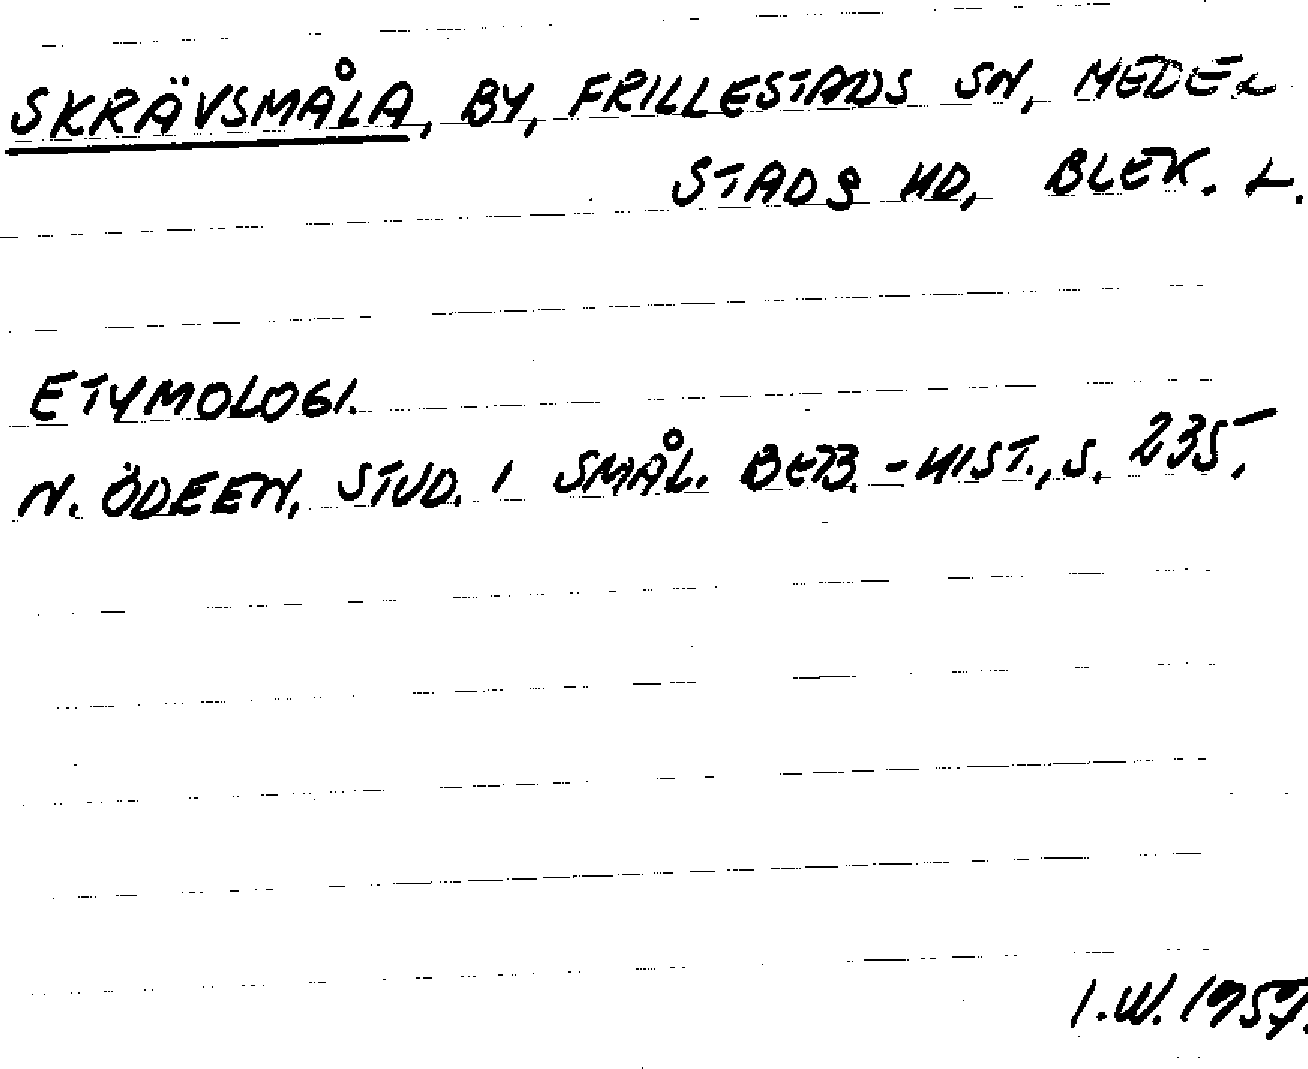 SKRÄVSMÅLA, BY, FRILLESTADS SN, MEDEL
STADS HD, BLEK. L.
ETYMOLOGI.
N. ÖDEEN, STUD. I SMÅL. BEB.-HIST., S. 235,
I.W. 1957.